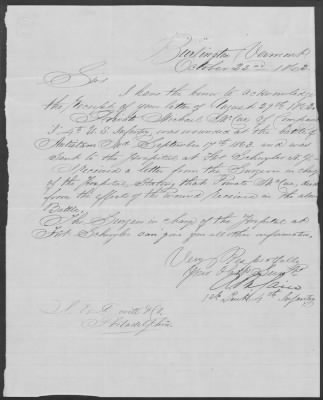 Burlington Vermont
October 22nd 1862
Sir
I have the honor to acknowledge
the receipt of your letter of August 29th 1862.
Private Michael McCue, of Company
4th U.S. Infantry, was wounded at the battle of
Antietam Md. September 17th 1862, and was
sent to the Hospital at Fort Schuyler N.Y.
Received a letter from the Surgeon in charge
of the Hospital, stating that Private McCue, died
from the effects of the wound received in the above
Battle.
The Surgeon in charge of the Hospital at
Fort Schuyler can give you all other information.
Very Respectfully
Your Obdt Servt
1st Lieut 4th Infantry
Philadelphia